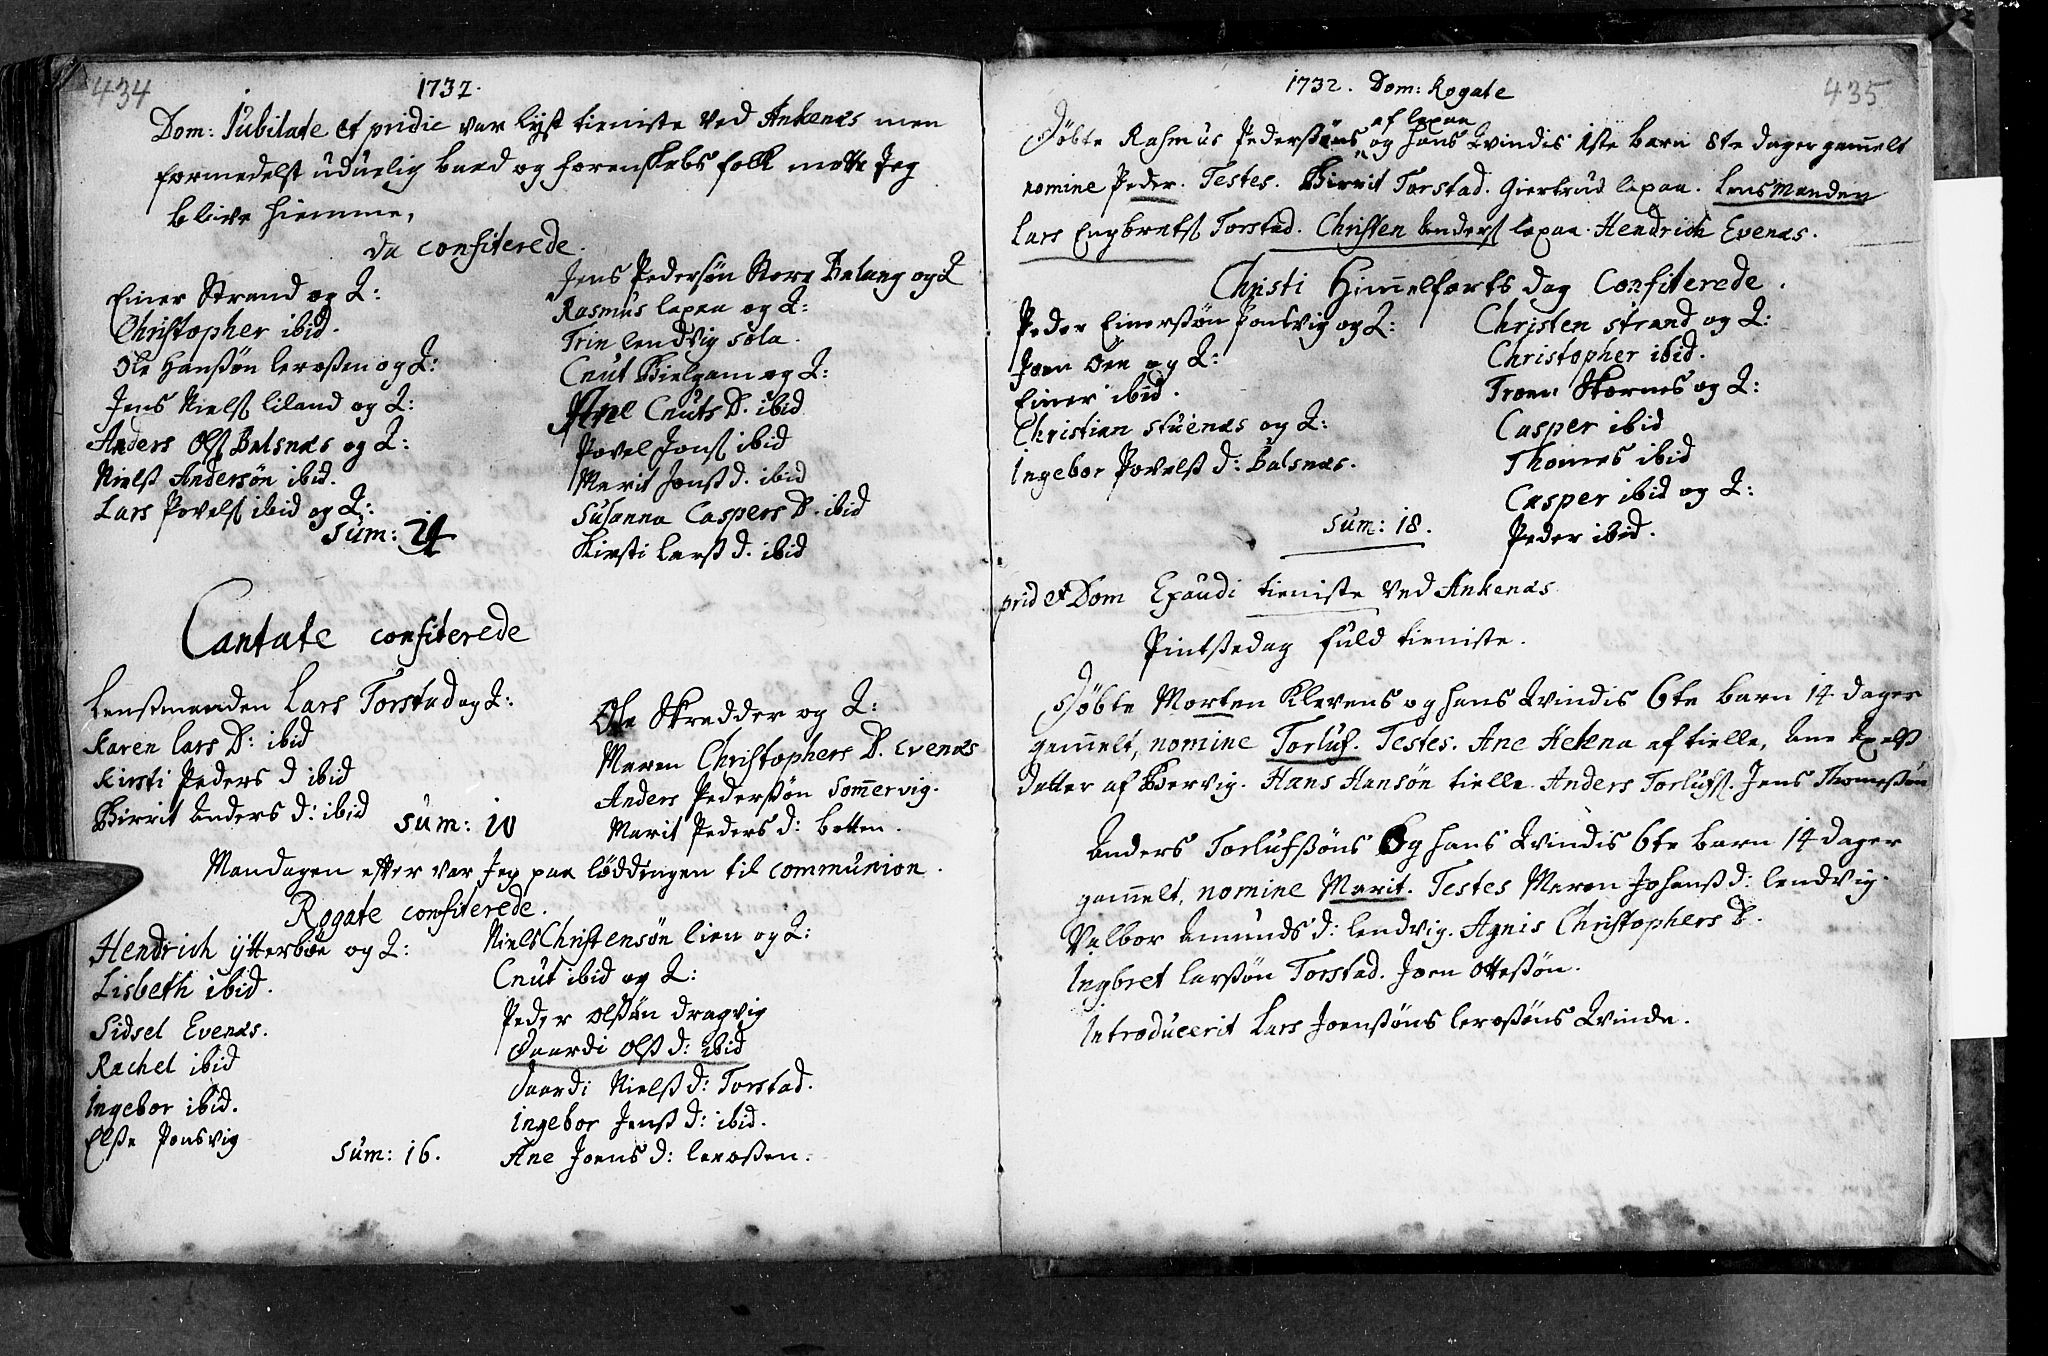 434
1732.
Dom: Jubilate et pridie var lyst tieniste ved Ankenæs men
formedelst uduelig baad og forenskabs folk motte Jeg
blive hiemme,
da confiterede.
Einer Strand og Q:
Christopher ibid.
Ole Hanssøn lerossen og Q:
Jens Niels: liland og Q:
Anders Ols: Balsnæs og Q:
Niels Andersøn ibid.
Lars Povels: ibid og Q:
Sum:
Jens Pedersøn Store Balang og Q
Rasmus lapaa og Q:
Trin lendvig sola.
Cnut Bielgam og Q:
Ane Cnuts D. ibid
Povel Jons: ibid
Marit Jonss d. ibid
Susanna Caspers D. ibid
Kirsti larss d. ibid
Cantate confiterede
Lenssmanden Lars Torstad og Q:
Karen Lars D: ibid
Kirsti Peders d ibid
Birrit Anders d: ibid
Sum: 10
Ole Skredder og Q:
Maren Christophers D. Evenæs
Anders Pederssøn Sommervig.
Marit Peders d: botten.
Mandagen efter var Jeg paa løddingen til communion.
Rogate confiterede.
Hendrich ÿtterbøe og Q:
Lisbeth ibid.
Sidsel Evenæs.
Rachel ibid
Ingebor ibid.
Elsse Ponsvig
Sum: 16.
Niels Christensøn lien og Q:
Cnut ibid og Q:
Peder olssøn dragvig
Gaardi Olss d: ibid
Gaardi Nielss d: Torstad.
Ingebor Jenss d: ibid.
Ane Joens d: lerossen.
435
1732. Dom: Rogate
af lapaa
Døbte Rasmus Pederssøns og hans Qvindis 1ste barn 8te dager gamelt
nomine Peder. Testes. Birrit Torstad. Giertrud lapaa. Lensmanden
Lars Engbrets: Torstad. Christen Anders: lapaa. Hendrich Evenæs.
Christi Himelfarts dag Confiterede.
Peder Einerssøn Ponsvig og Q:
Joen Øen og Q:
Einer ibid.
Christian Stuenæs og Q:
Ingebor Povelss d: Balsnæs.
Sum: 18.
Christen Strand og Q:
Christopher ibid.
Skarnes og Q:
Casper ibid
Thomes ibid
Casper ibid og Q:
Peder ibid.
prid et Dom Exaudi tieniste ved Ankenæs
Pintssedag fuld tieniste.
Døbte Morten Klevens og hans Qvindis 6te barn 14 dager
gamelt, nomine Torluf. Testes. Ane Helena af tielle, Ane Axelss
datter af Bervig. Hans Hansøn tielle Anders Torlufs: Jens Thomessøn
Anders Torlufssøns og hans Qvindis 6te barn 14 dager
gamelt, nomine Marit. Testes Maren Johanss d: lendvig.
Valbor Amunds d: lendvig. Agnis Christophers D.
Ingbret larssøn Torstad. Joen Ottessøn.
Introducerit Lars Joenssøns lerossøns Qvinde.